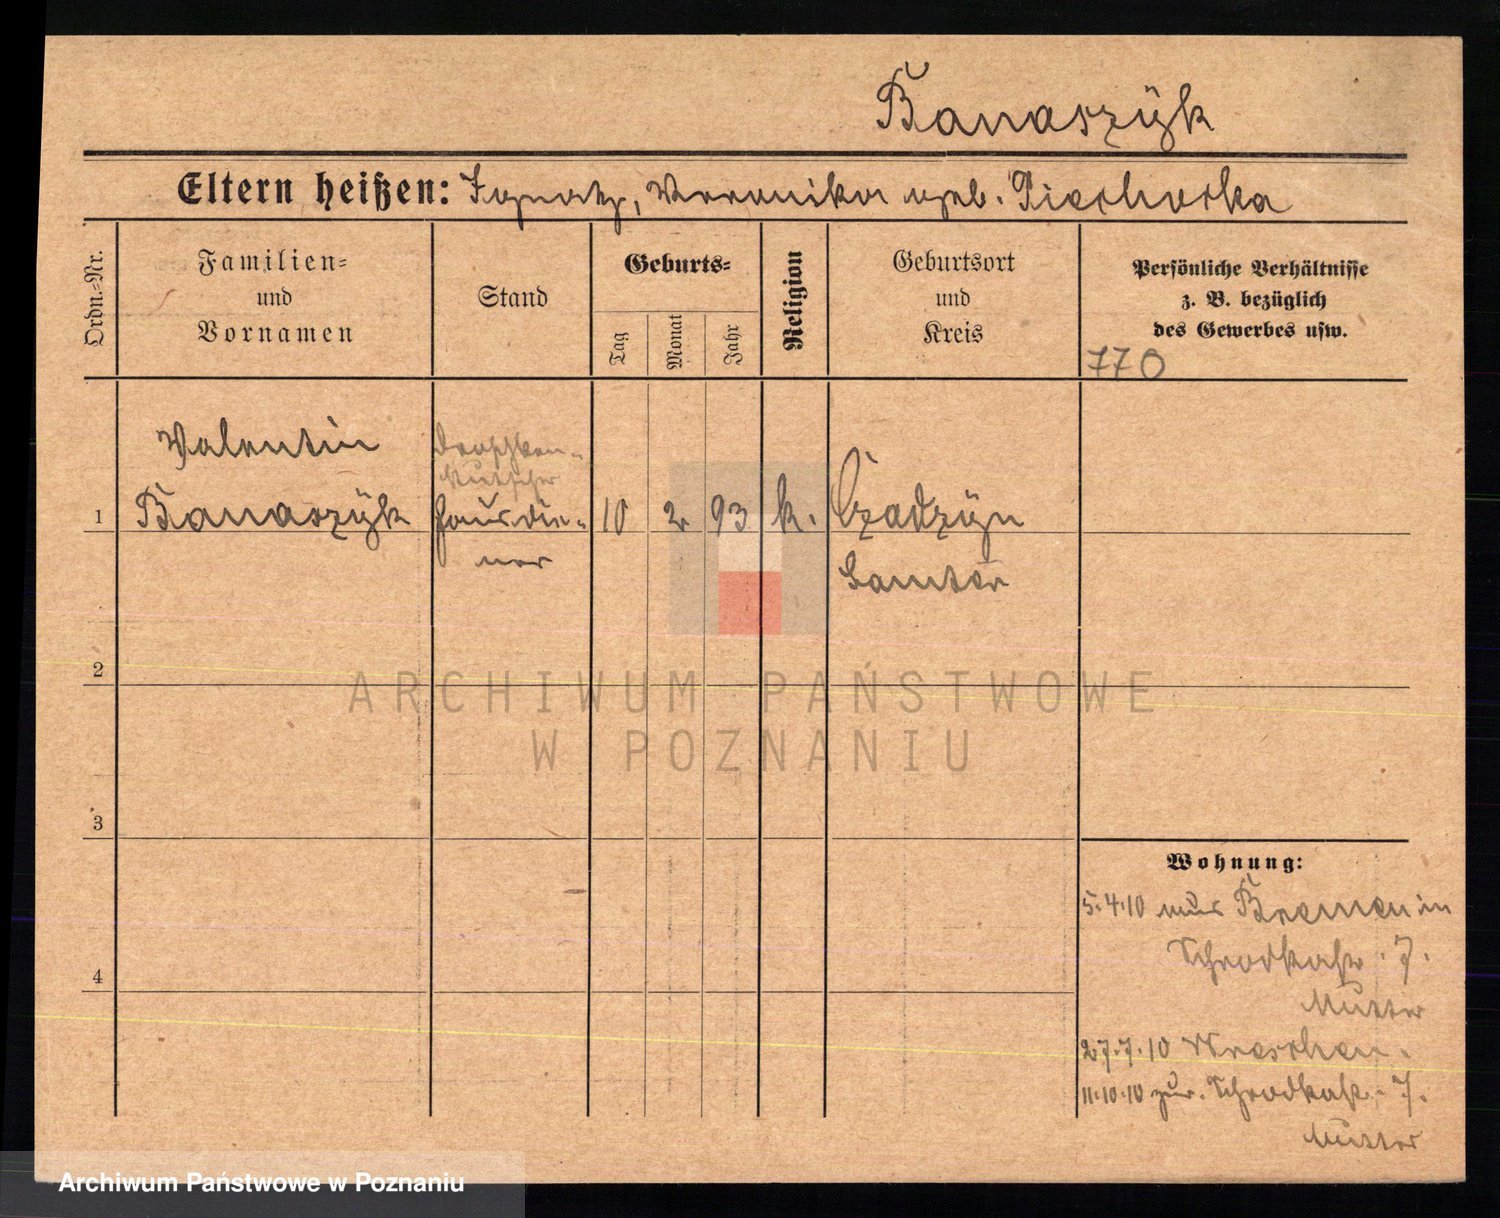 Banaszÿk
Eltern heißen: Ignatz, Veronika geb. Piechocka
Ordn.-Nr.
Familien-
und
Vornamen
Stand
Geburts-
Tag
Monat
Jahr
Religion
Geburtsort
und
Kreis
Persönliche Verhältnisse
z. B. bezüglich
des Gewerbes usw.
770
Valentin
Droschken-
kutscher
1 Banaszÿk Hausdie- 10 2 93 k.
ner
Samter
2
3
4
ARCHIWUM PAŃSTWOWE
W POZNANIU
Wohnung:
5.4.10 aus Bremen in
Schrodkastr. 7.
Mutter
27.7.10 Wreschen.
11.10.10 zur. Schrodkastr. 7.
Mutter
Archiwum Państwowe w Poznaniu